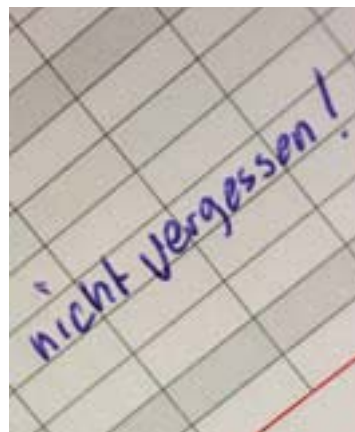 nicht vergessen!